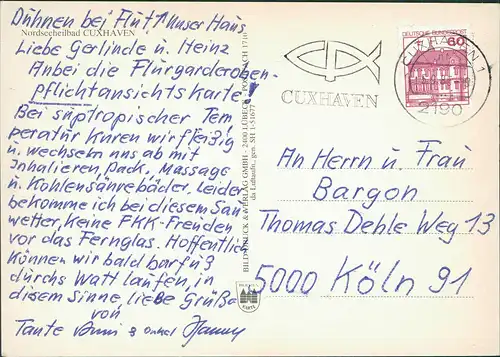 Dühnen bei Flut ↑ unser Haus
Nordseeheilbad CUXHAVEN
Liebe Gerlinde u. Heinz
Anbei die Flurgarderoben-
pflichtansichtskarte!
Bei suptropischer Tem
peratur kuren wir fleißig
u. wechseln uns ab mit
Inhalieren, Pack, Massage
u. Kohlensäurebäder. Leider
bekomme ich bei diesem Sau
wetter, keine FKK-Freuden
vor das Fernglas. Hoffentlich
können wir bald barfuß
durchs Watt laufen, in
diesem Sinne, liebe Grüße
von
Tante Anni & onkel Hanny
BILD DRUCK & VERLAG GMBH - 2400 LÜBECK - POSTFACH 1710
da Luftaufn., gen. SH 1/51677
CUXHAVEN
DEUTSCHE BUNDESPOST
60
CUXHAVEN 1
2190
An Herrn u. Frau
Bargon
Thomas Dehle Weg 13
5000 Köln 91